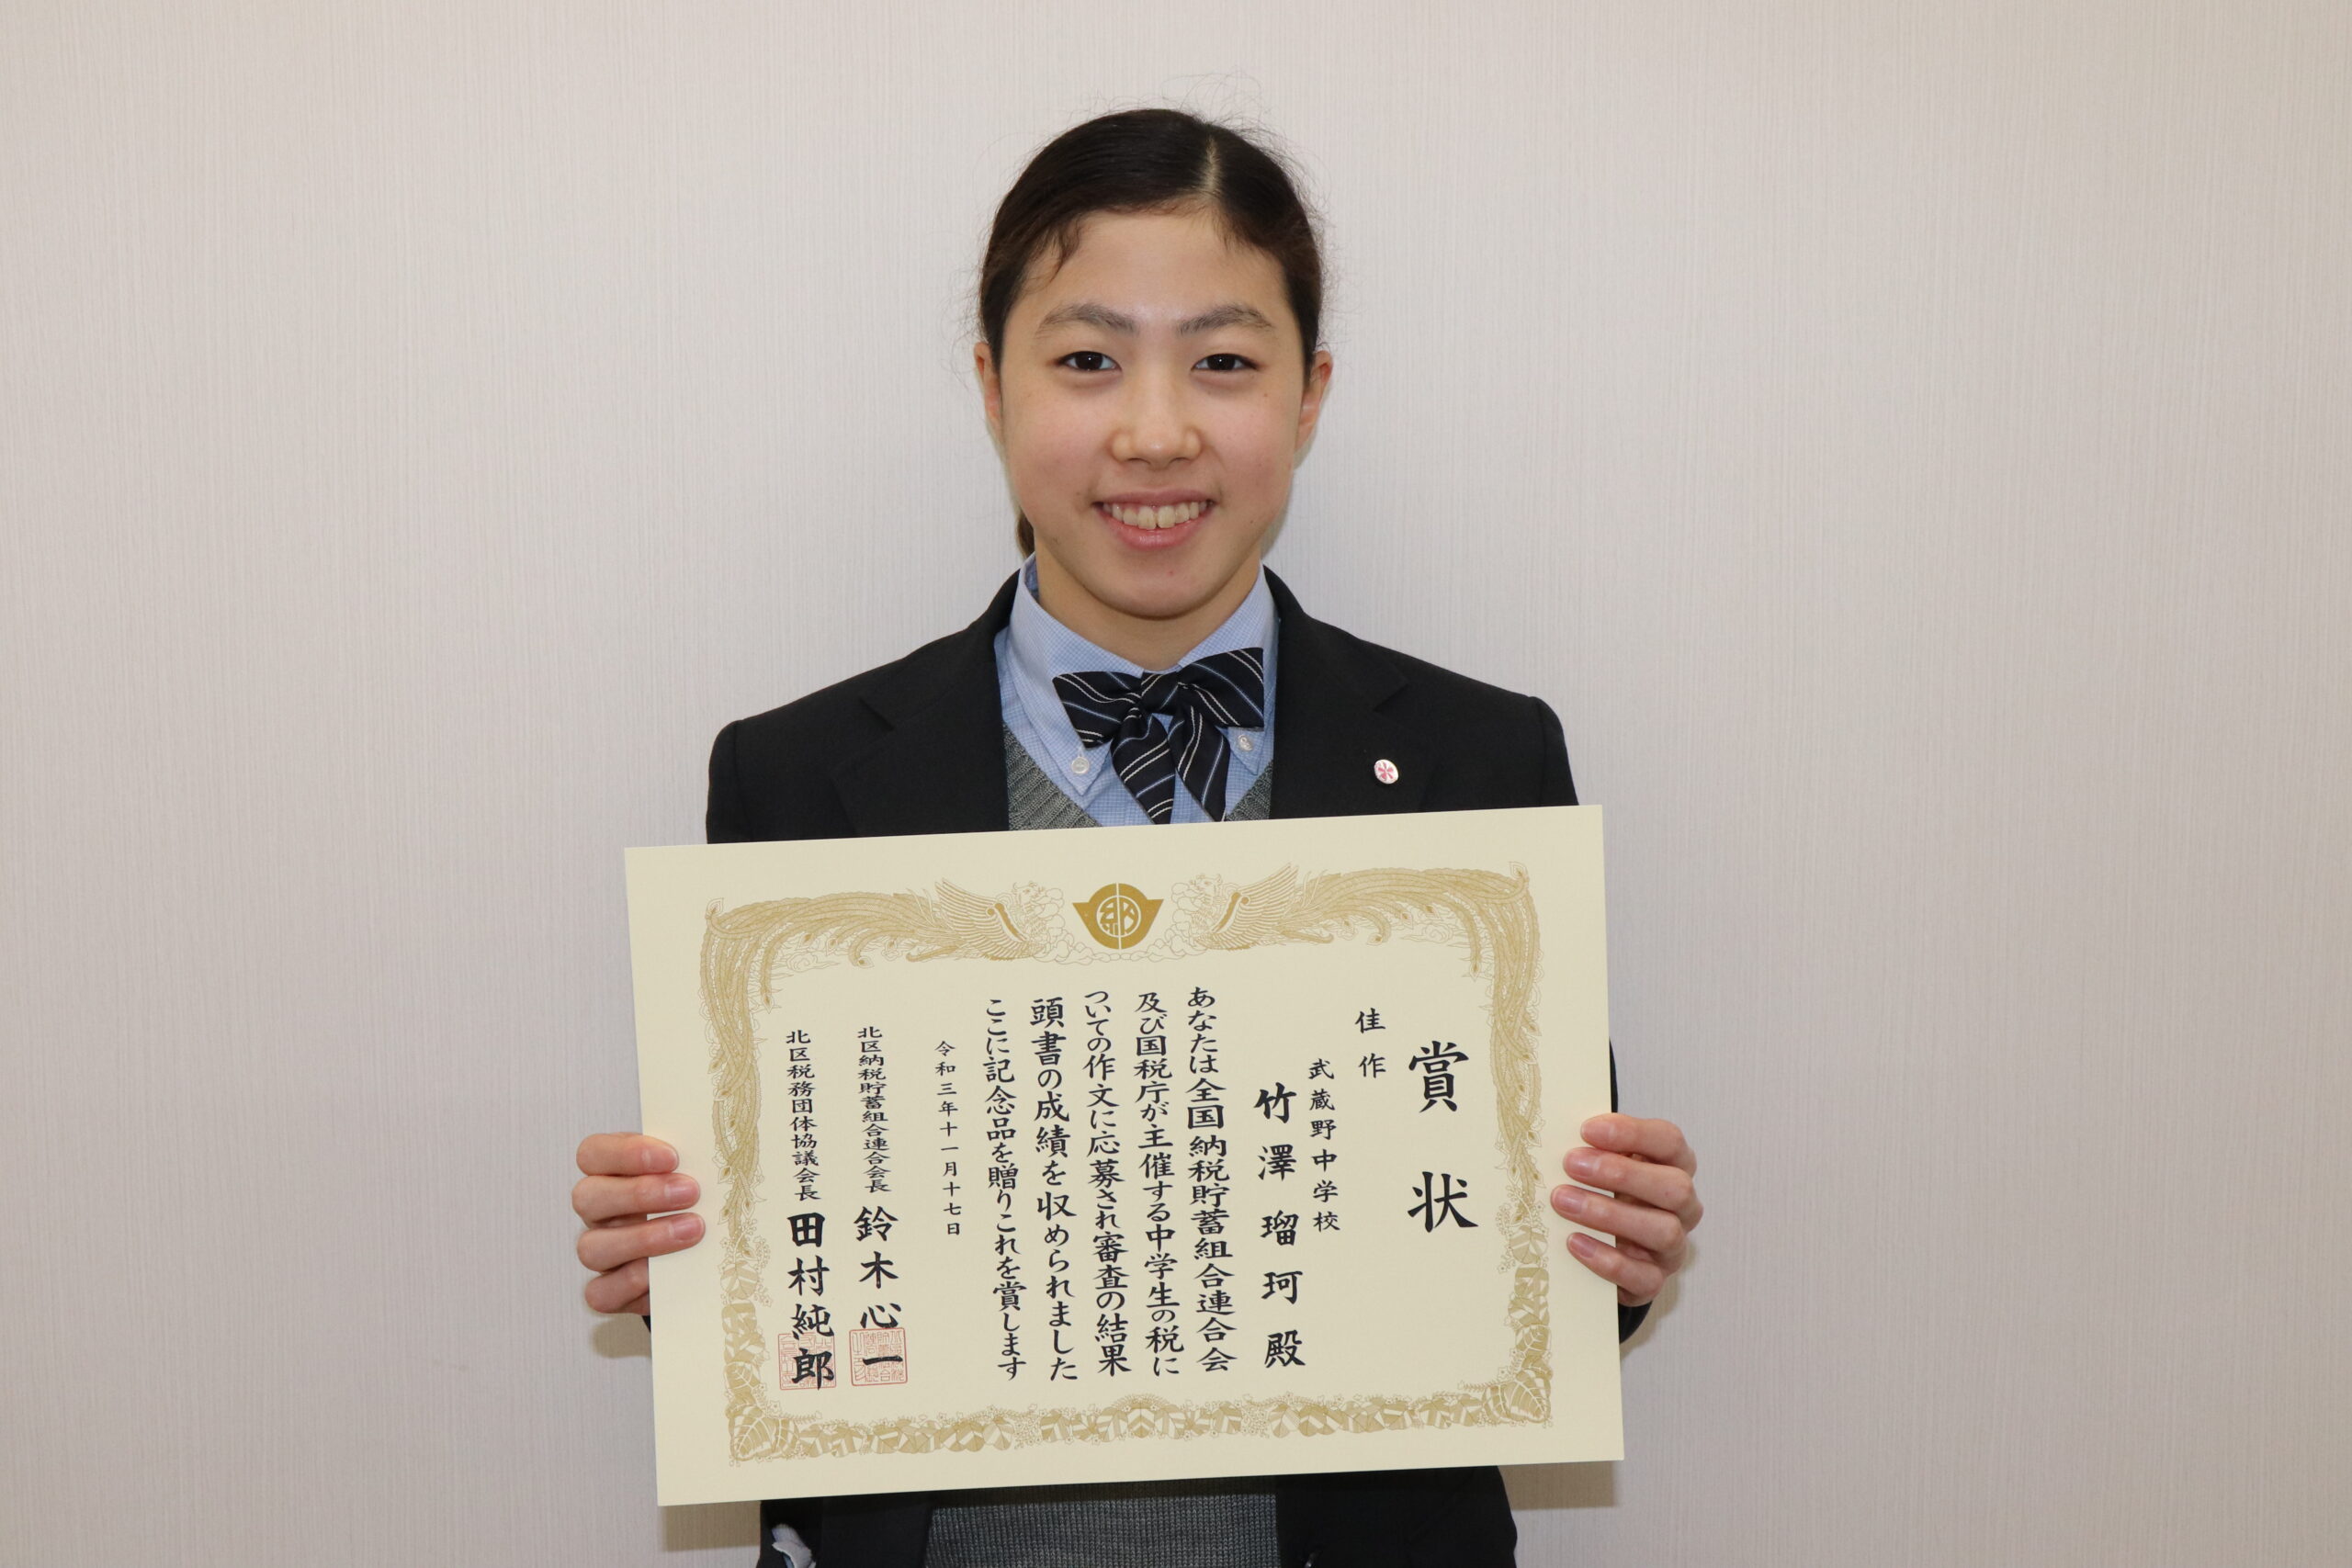 賞状
佳作
武蔵野中学校
竹澤瑠珂殿
あなたは全国納税貯蓄組合連合会
及び国税庁が主催する中学生の税に
ついての作文に応募され審査の結果
頭書の成績を収められました
ここに記念品を贈りこれを賞します
令和三年十一月十七日
北区納税貯蓄組合連合会長 鈴木心一
北区税務団体協議会長 田村純郎
納